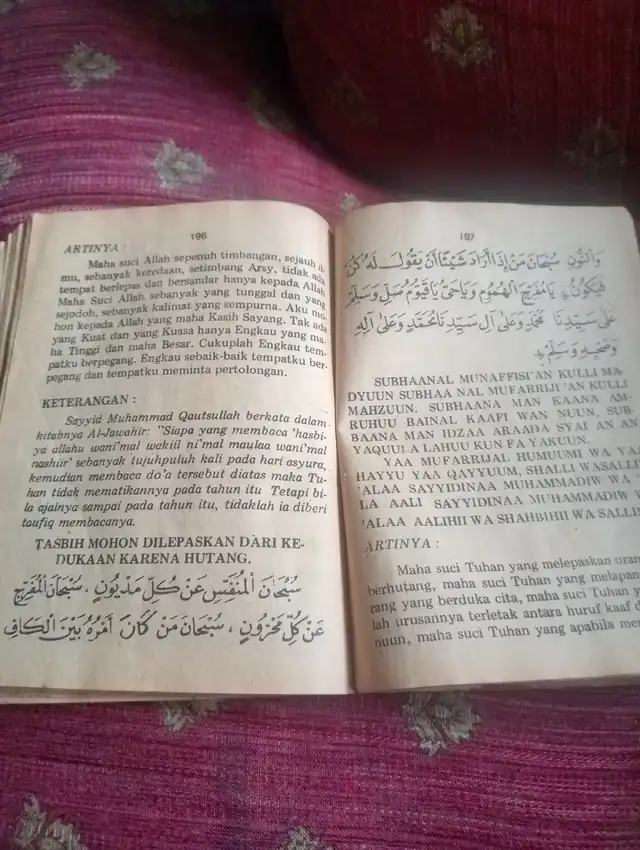 196
ARTINYA :
Maha suci Allah sepenuh timbangan, sejauh il-
mu, sebanyak keredaan, setimbang Arsy, tidak ada
tempat berlepas dan bersandar hanya kepada Allah
Maha Suci Allah sebanyak yang tunggal dan yang
sejodoh, sebanyak kalimat yang sempurna. Aku mo-
hon kepada Allah yang maha Kasih Sayang. Tak ada
yang Kuat dan yang Kuasa hanya Engkau yang ma-
ha Tinggi dan maha Besar. Cukuplah Engkau tem-
patku berpegang. Engkau sebaik-baik tempatku ber-
pegang dan tempatku meminta pertolongan.
KETERANGAN :
Sayyid Muhammad Qautsullah berkata dalam
kitabnya Al-Jawahir: "Siapa yang membaca 'hasbi-
ya allahu wani'mal wekiil ni'mal maulaa wani'mal
nashiir' sebanyak tujuhpuluh kali pada hari asyura,
kemudian membaca do'a tersebut diatas maka Tu-
han tidak mematikannya pada tahun itu Tetapi bi-
la ajalnya sampai pada tahun itu, tidaklah ia diberi
taufiq membacanya.
TASBIH MOHON DILEPASKAN DARI KE-
DUKAAN KARENA HUTANG.
سُبْحَانَ الْمُنَفِّسِ عَنْ كُلِّ مَدْيُونٍ ، سُبْحَانَ الْمُفَرِّجِ
عَنْ كُلِّ مَحْزُونٍ ، سُبْحَانَ مَنْ كَانَ أَمْرُهُ بَيْنَ الْكَافِ
197
وَالنُّونِ سُبْحَانَ مَنْ إِذَا أَرَادَ شَيْئًا أَنْ يَقُولَ لَهُ كُنْ
فَيَكُونُ يَامُفَرِّجَ الْهُمُومِ وَيَاحَيُّ يَاقَيُّومُ صَلِّ وَسَلِّمْ
عَلَى سَيِّدِنَا مُحَمَّدٍ وَعَلَى آلِ سَيِّدِنَا مُحَمَّدٍ وَعَلَى آلِهِ
وَصَحْبِهِ وَسَلِّمْ
SUBHAANAL MUNAFFISI'AN KULLI MA-
DYUUN SUBHAA NAL MUFARRIJI 'AN KULLI
MAHZUUN. SUBHAANA MAN KAANA AM-
RUHUU BAINAL KAAFI WAN NUUN, SUB-
BAANA MAN IDZAA ARAADA SYAI AN AN
YAQUULA LAHUU KUN FA YAKUUN.
YAA MUFARRIJAL HUMUUMI WA YAA
HAYYU YAA QAYYUUM, SHALLI WASALLI
'ALAA SAYYIDINAA MUHAMMADIW WA
LA AALI SAYYIDINAA MUHAMMADIW
'ALAA AALIHII WA SHAHBIHII WA SALLI
ARTINYA :
Maha suci Tuhan yang melepaskan oran
berhutang, maha suci Tuhan yang melapan
rang yang berduka cita, maha suci Tuhan y
lah urusannya terletak antara huruf kaaf d
nuun, maha suci Tuhan yang apabila me